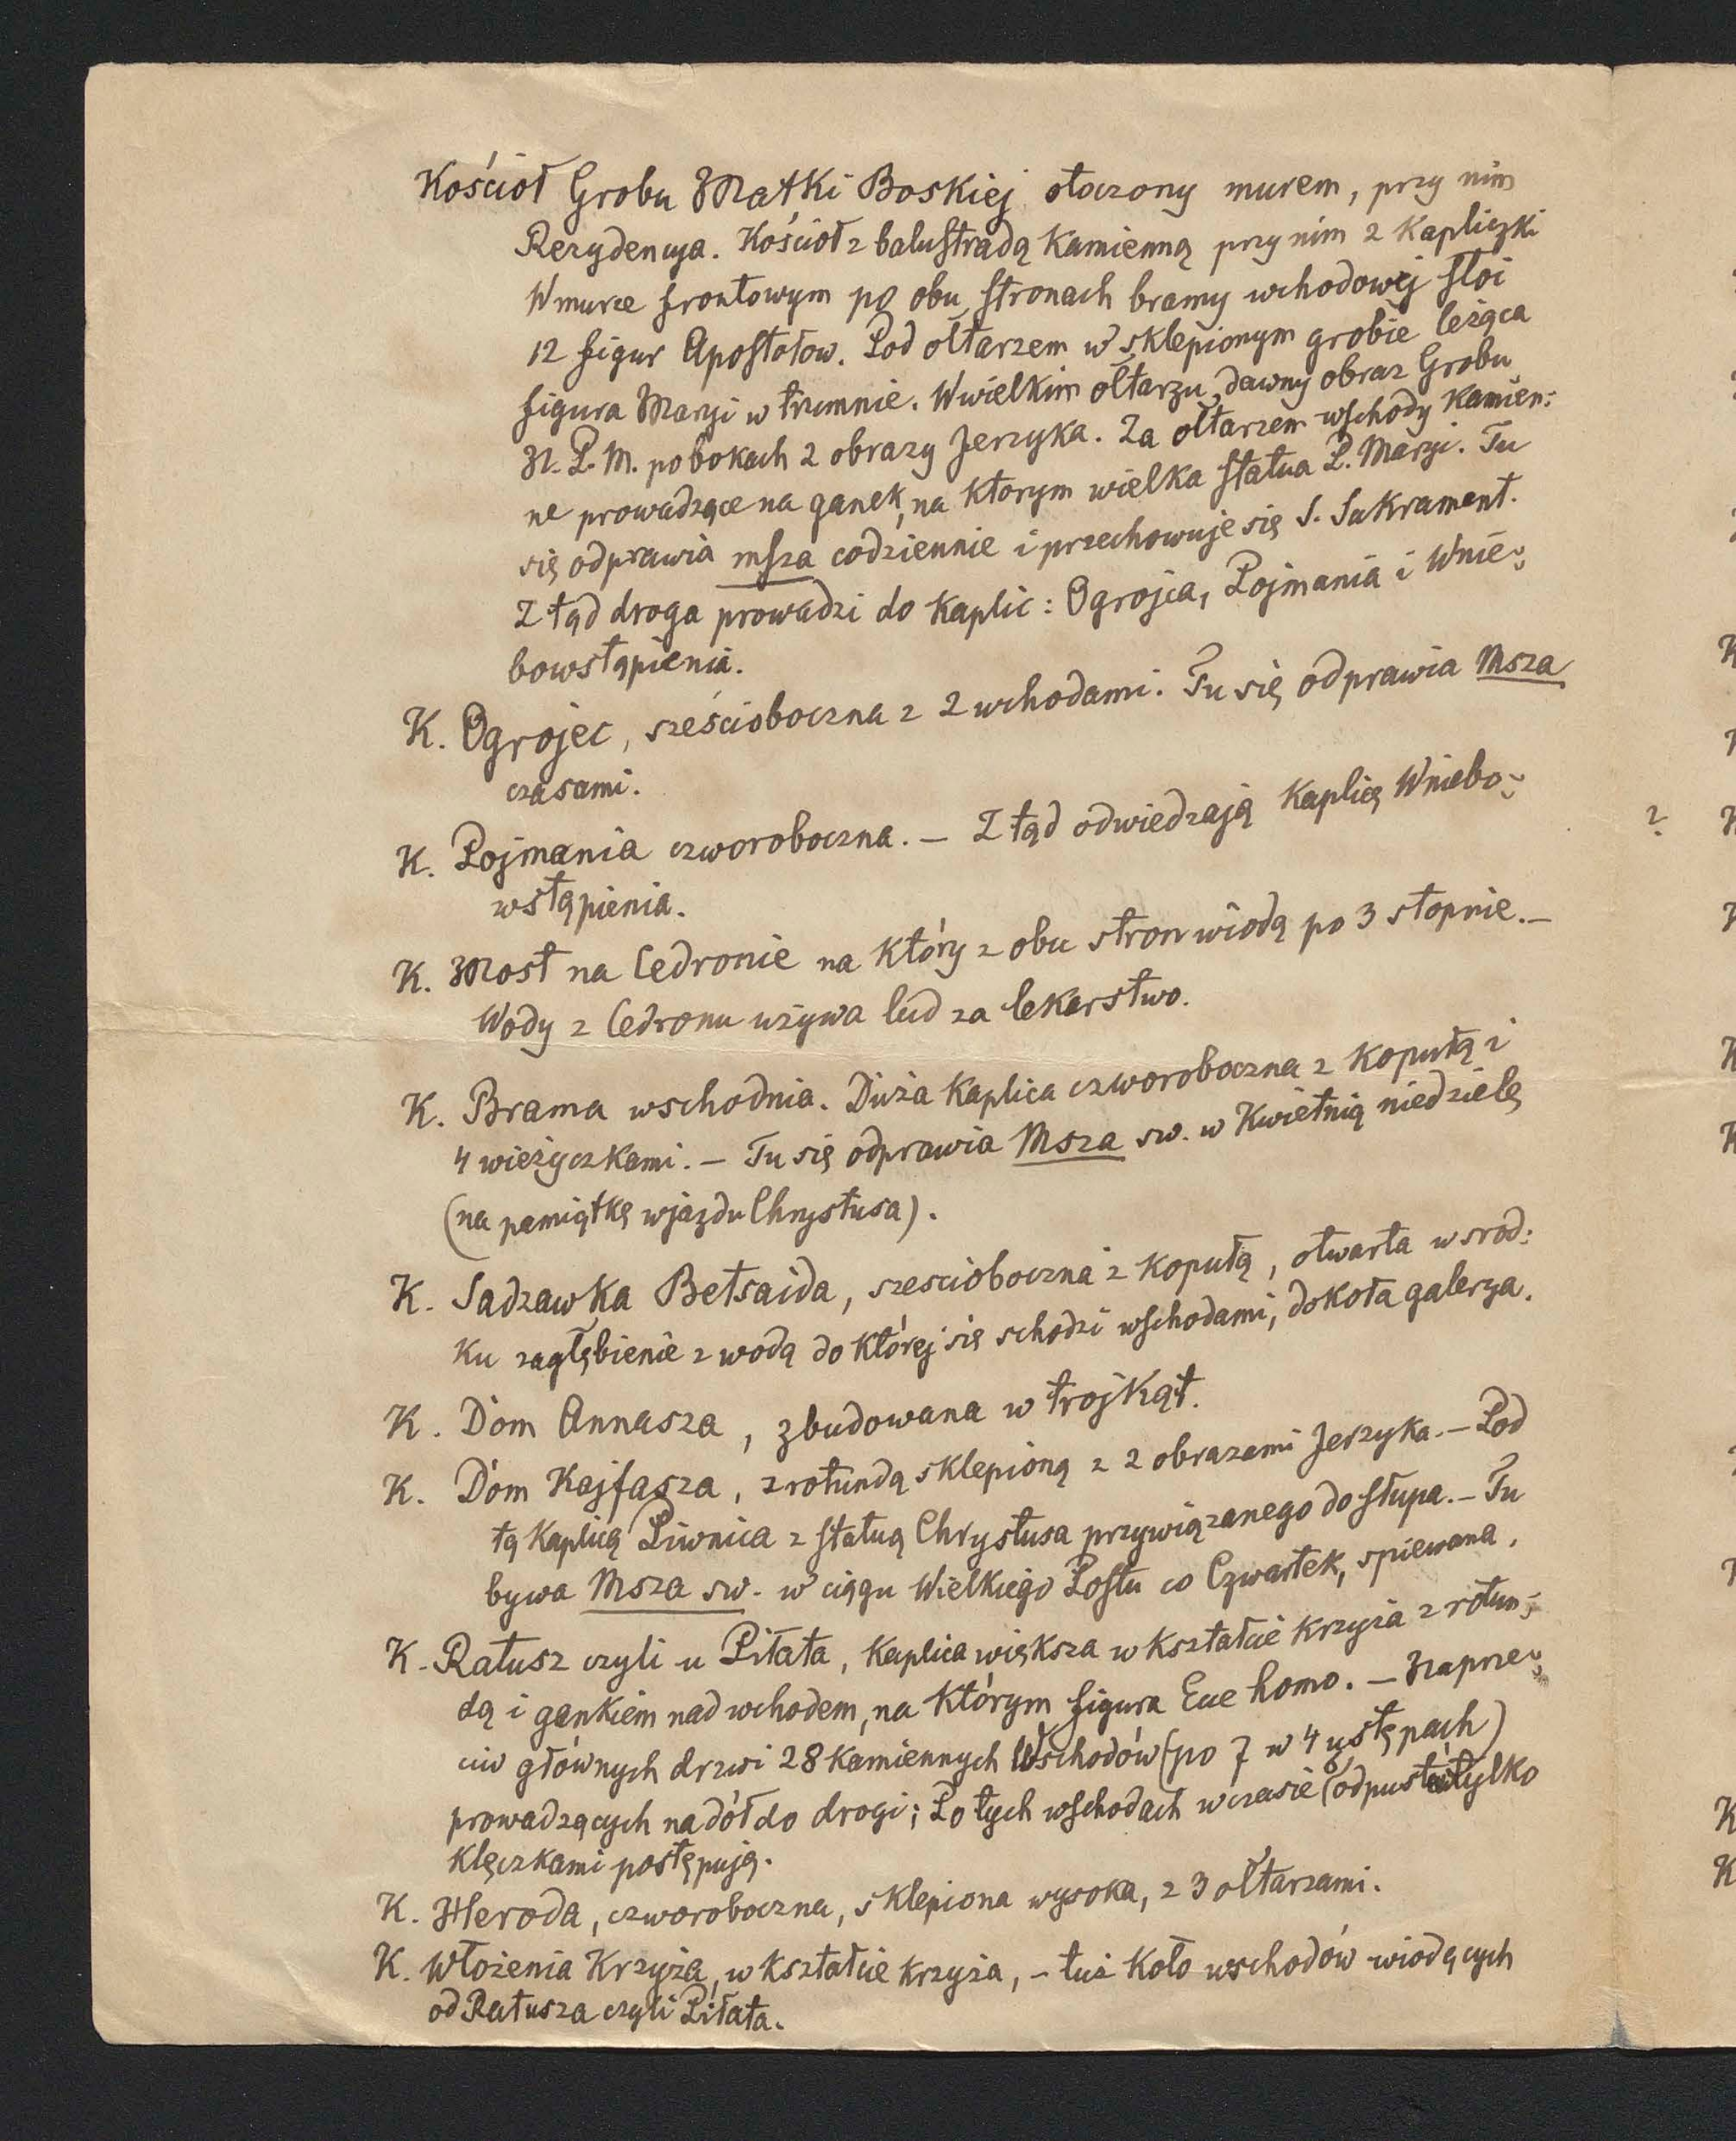 Kościoł Grobu Matki Boskiej otoczony murem, przy nim
Rezydencya. Kościoł z balustradą kamienną przy nim 2 kapliczki
W murze frontowym po obu stronach bramy wchodowej stoi
12 figur Apostołow. Pod ołtarzem w sklepionym grobie leżąca
figura Maryi w trumnie. W wielkim ołtarzu dawny obraz Grobu
N. P. M. po bokach 2 obrazy Jerzyka. Za ołtarzem wschody kamien:
ne prowadzące na ganek, na ktorym wielka statua P. Maryi. Tu
się odprawia msza codziennie i przechowuje się S. Sakrament.
Z tąd droga prowadzi do kaplic: Ogrojca, Pojmania i Wnie:
bowstąpienia.
K. Ogrojec, sześcioboczna z 2 wchodami. Tu się odprawia Msza
czasami.
K. Pojmania czworoboczna. — Z tąd odwiedzają kaplicę Wniebo:
wstąpienia.
K. Most na Cedronie na który z obu stron wiodą po 3 stopnie. —
Wody z Cedronu używa lud za lekarstwo.
K. Brama wschodnia. Duża kaplica czworoboczna z kopułą i
4 wieżyczkami. — Tu się odprawia Msza sw. w Kwietnią niedzielę
(na pamiątkę wjazdu Chrystusa).
K. Sadzawka Betsaida, szescioboczna z kopułą, otwarta w srod:
ku zagłębienie z wodą do której się schodzi wschodami, dokoła galerya.
K. Dom Annasza, zbudowana w trojkąt.
K. Dom Kajfasza, z rotundą sklepioną z 2 obrazami Jerzyka. — Pod
tą kaplicą Piwnica z statuą Chrystusa przywiązanego do słupa. — Tu
bywa Msza sw. w ciągu Wielkiego Postu co Czwartek, spiewana.
K. Ratusz czyli u Piłata, kaplica większa w kształcie krzyża z rotun:
dą i gankiem nad wchodem, na którym figura Ecce homo. — Naprze:
ciw głównych drzwi 28 kamiennych Wschodów (po 7 w 4 ustępach)
prowadzących na dół do drogi; Po tych wschodach w czasie odpustu tylko
klęczkami postępują.
K. Heroda, czworoboczna, sklepiona wysoka, z 3 ołtarzami.
K. Włożenia Krzyża, w kształcie krzyża, – tuż koło wschodów wiodących
od Ratusza czyli Piłata.
2.